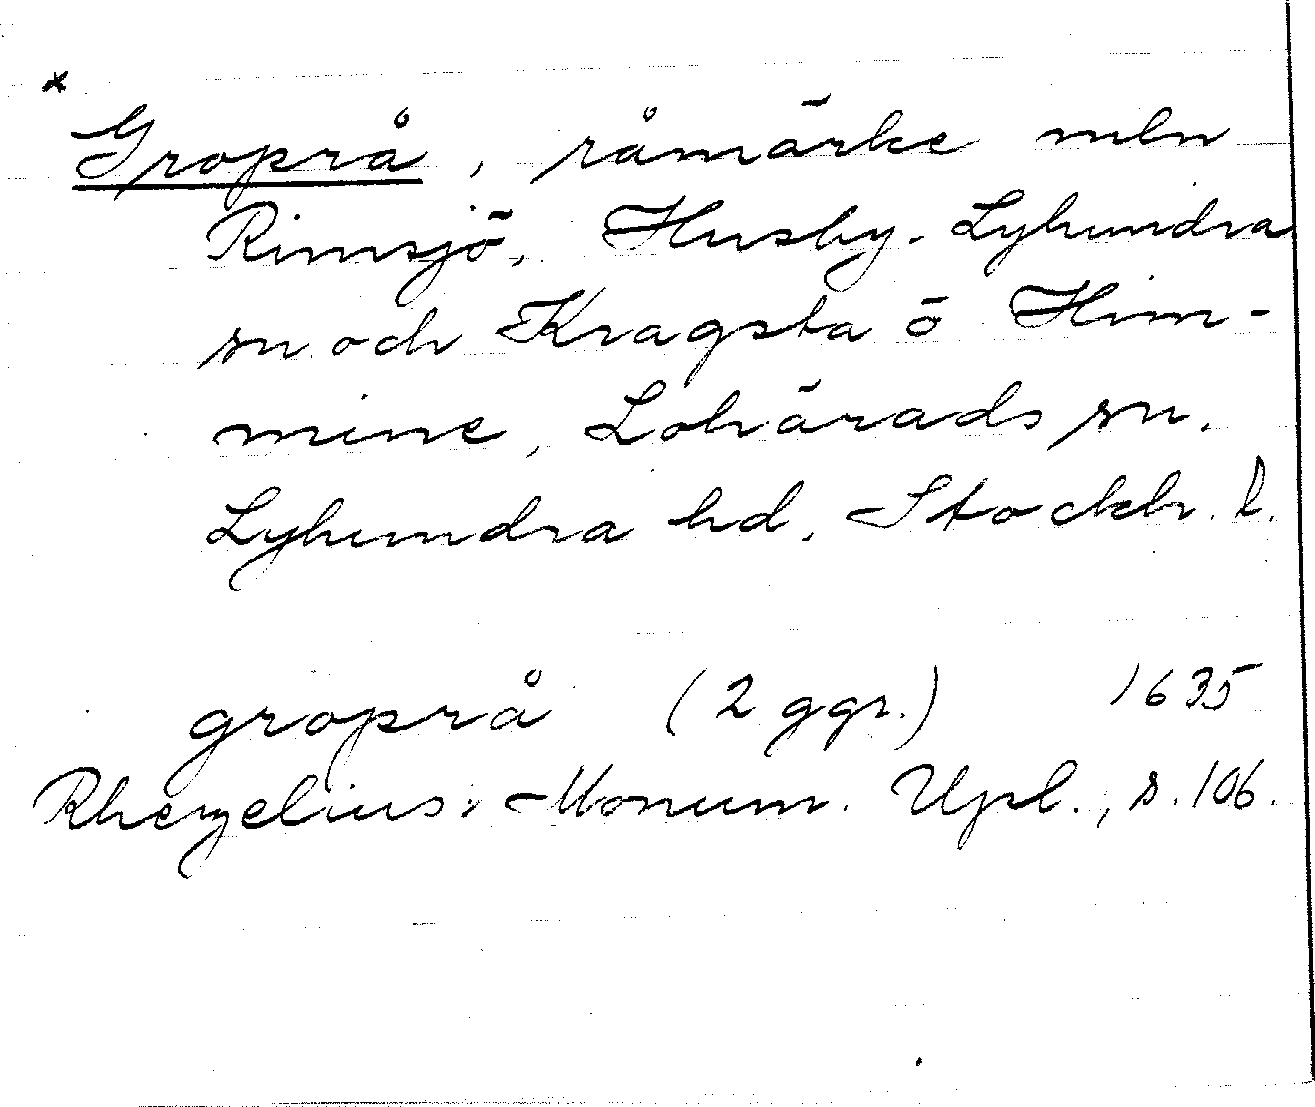 * Groprå, råmärke mln
Rimsjö, Husby-Lyhundra
sn och Kragsta ö Him-
mine, Lohärads sn.
Lyhundra hd, Stockh. l.
groprå (2 ggr.) 1635
Rhezelius, Monum. Upl., s. 106.